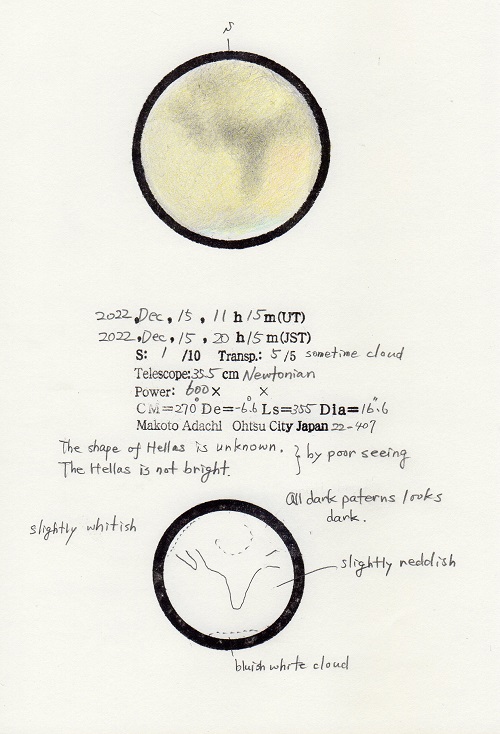 S
2022, Dec, 15, 11 h 15 m (UT)
2022, Dec, 15, 20 h 15 m (JST)
S: 1 /10 Transp.: 5 /5 sometime cloud
Telescope: 35.5 cm Newtonian
Power: 600 × ×
CM=270° De=-6.6° Ls=355 Dia=16".6
Makoto Adachi Ohtsu City Japan 22-407
The shape of Hellas is unknown.
The Hellas is not bright.
} by poor seeing
All dark paterns looks
dark.
slightly whitish
slightly reddish
bluish white cloud